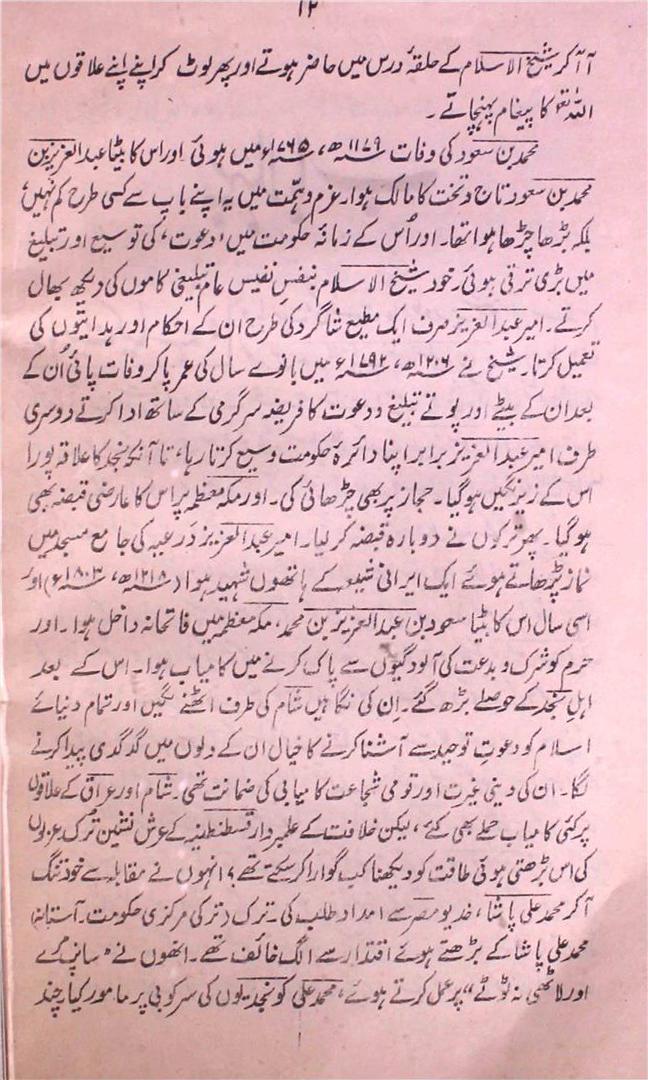 ۱۲
آ آ کر شیخ الاسلام کے حلقۂ درس میں حاضر ہوتے اور پھر لوٹ کر اپنے اپنے علاقوں میں
اللہ تعؐ کا پیغام پہنچاتے ۔
محمد بن سعود کی وفات ۱۱۷۹ھ، ۱۷۶۵ء میں ہوئی اور اس کا بیٹا عبدالعزیز بن
محمد بن سعود تاج و تخت کا مالک ہوا۔ عزم و ہمّت میں یہ اپنے باپ سے کسی طرح کم نہیں،
بلکہ بڑھا چڑھا ہوا تھا۔ اور اُس کے زمانۂ حکومت میں ‘دعوت’ کی توسیع اور تبلیغ
میں بڑی ترقی ہوئی۔ خود شیخ الاسلام بنفسِ نفیس عام تبلیغی کاموں کی دیکھ بھال
کرتے ۔ امیر عبدالعزیز صرف ایک مطیع شاگرد کی طرح ان کے احکام اور ہدایتوں کی
تعمیل کرتا۔ شیخ نے ۱۲۰۶ھ، ۱۷۹۲ء میں بانوے سال کی عمر پا کر وفات پائی اُن کے
بعد ان کے بیٹے اور پوتے تبلیغ و دعوت کا فریضہ سرگرمی کے ساتھ ادا کرتے دوسری
طرف امیر عبدالعزیز برابر اپنا دائرۂ حکومت وسیع کرتا رہا، تا آنکہ نجد کا علاقہ پورا
اس کے زیرنگیں ہو گیا۔ حجاز پر بھی چڑھائی کی۔ اور مکہ معظمہ پر اس کا عارضی قبضہ بھی
ہو گیا۔ پھر ترکوں نے دوبارہ قبضہ کر لیا۔ امیر عبدالعزیز دَرعیہ کی جامع مسجد میں
نماز پڑھاتے ہوئے ایک ایرانی شیعہ کے ہاتھوں شہید ہوا (۱۲۱۸ھ، ۱۸۰۳ء) اور
اسی سال اس کا بیٹا سعود بن عبدالعزیز بن محمد، مکہ معظمہ میں فاتحانہ داخل ہوا ۔ اور
حرم کو شرک و بدعت کی آلودگیوں سے پاک کرنے میں کامیاب ہوا۔ اس کے بعد
اہلِ نجد کے حوصلے بڑھ گئے ۔ اِن کی نگاہیں شام کی طرف اٹھنے لگیں اور تمام دنیائے
اسلام کو دعوتِ توحید سے آشنا کرنے کا خیال ان کے دلوں میں گدگدی پیدا کرنے
لگا۔ ان کی دینی غیرت اور قومی شجاعت کامیابی کی ضمانت تھی۔ شام اور عراق کے علاقوں
پر کئی کامیاب حملے بھی کئے، لیکن خلافت کے علمبردار قسطنطنیہ کے عرش نشین تُرک عربوں
کی اس بڑھتی ہوئی طاقت کو دیکھنا کب گوارا کر سکتے تھے؟ انہوں نے مقابلہ سے خود تنگ
آ کر محمد علی پاشا، خدیو مصر سے امداد طلب کی ۔ ترک (ترکی مرکزی حکومت ۔ آستانہ)
محمد علی پاشا کے بڑھتے ہوئے اقتدار سے الگ خائف تھے ۔ انھوں نے “سانپ مرے
اور لاٹھی نہ ٹوٹے” پر عمل کرتے ہوئے، محمد علی کو نجدیوں کی سرکوبی پر مامور کیا۔ چند